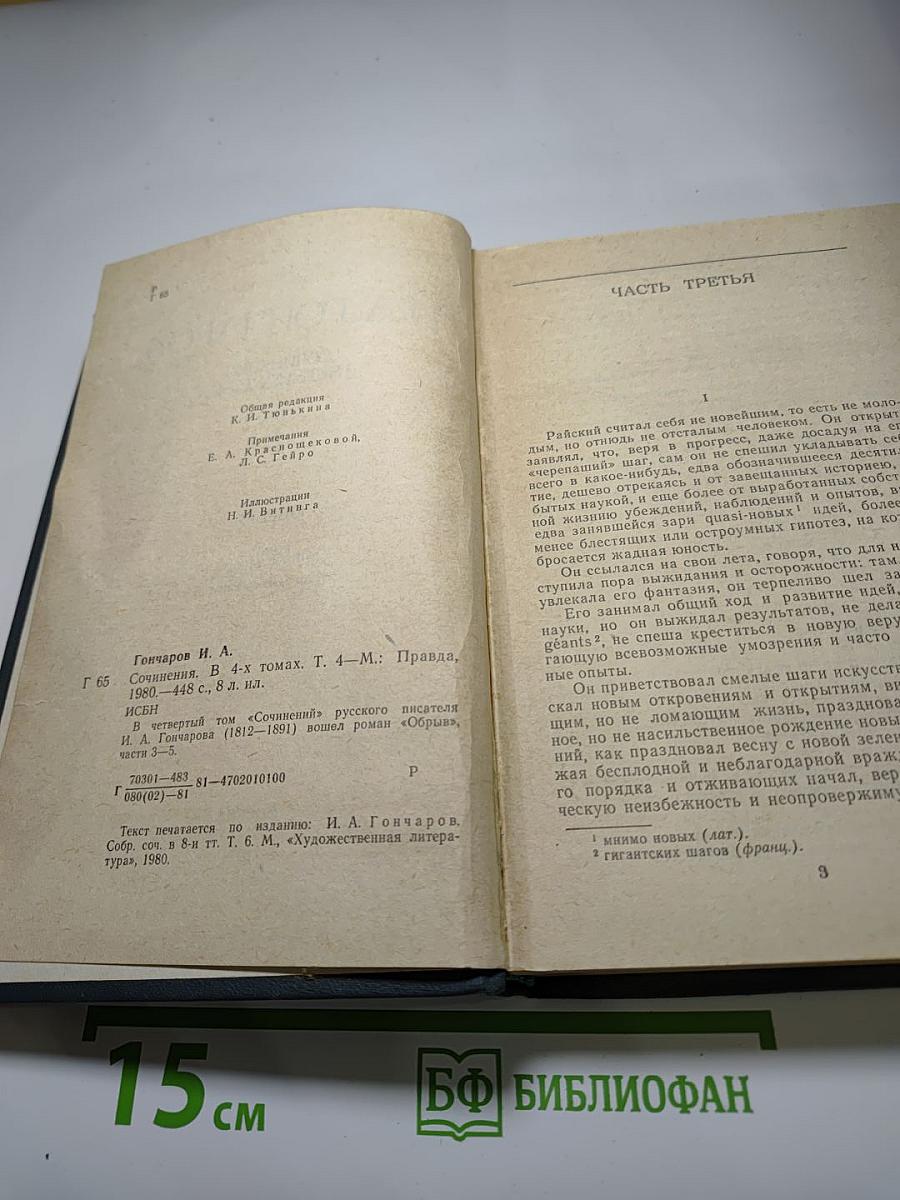 Р
Г 65
Общая редакция
К. И. Тюнькина
Примечания
Е. А. Краснощековой,
Л. С. Гейро
Иллюстрации
Н. И. Витинга
Гончаров И. А.
Г 65 Сочинения. В 4-х томах. Т. 4—М.: Правда,
1980.—448 с., 8 л. ил.
ИСБН
В четвертый том «Сочинений» русского писателя
И. А. Гончарова (1812—1891) вошел роман «Обрыв»,
части 3—5.
Г 70301—483 / 080(02)—81 81—4702010100 Р
Текст печатается по изданию: И. А. Гончаров.
Собр. соч. в 8-и тт. Т. 6. М., «Художественная литера-
тура», 1980.
ЧАСТЬ ТРЕТЬЯ
I
Райский считал себя не новейшим, то есть не моло-
дым, но отнюдь не отсталым человеком. Он открыт
заявлял, что, веря в прогресс, даже досадуя на ег
«черепаший» шаг, сам он не спешил укладывать себ
всего в какое-нибудь, едва обозначившееся десятил
тие, дешево отрекаясь и от завещанных историею,
бытых наукой, и еще более от выработанных собст
ной жизнию убеждений, наблюдений и опытов, в
едва занявшейся зари quasi-новых¹ идей, более
менее блестящих или остроумных гипотез, на кот
бросается жадная юность.
Он ссылался на свои лета, говоря, что для н
ступила пора выжидания и осторожности: там,
увлекала его фантазия, он терпеливо шел за
Его занимал общий ход и развитие идей,
науки, но он выжидал результатов, не дела
géants², не спеша креститься в новую веру
гающую всевозможные умозрения и часто
ные опыты.
Он приветствовал смелые шаги искусств
скал новым откровениям и открытиям, ви
щим, но не ломающим жизнь, празднова
ное, но не насильственное рождение новы
ний, как праздновал весну с новой зелен
жая бесплодной и неблагодарной вражд
го порядка и отживающих начал, вер
ческую неизбежность и неопровержиму
¹ мнимо новых (лат.).
² гигантских шагов (франц.).
3
15 см
БФ БИБЛИОФАН